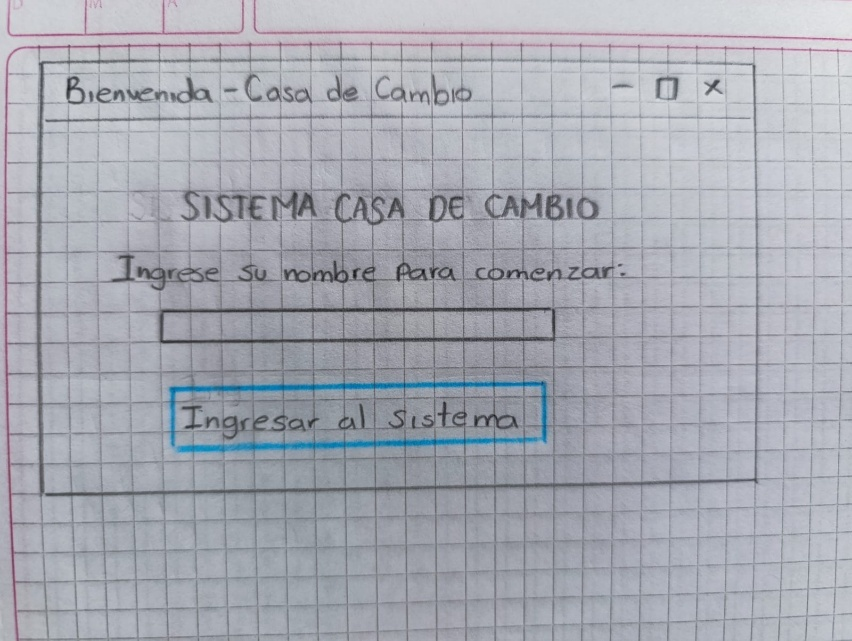 Bienvenida - Casa de Cambio - □ ×
SISTEMA CASA DE CAMBIO
Ingrese su nombre para comenzar:
Ingresar al sistema